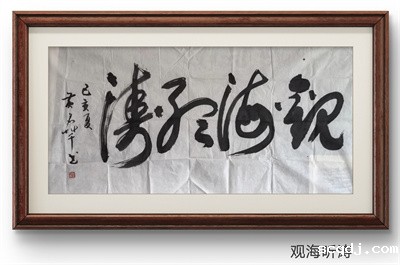 觀海聽濤
己亥夏
书
观海听涛